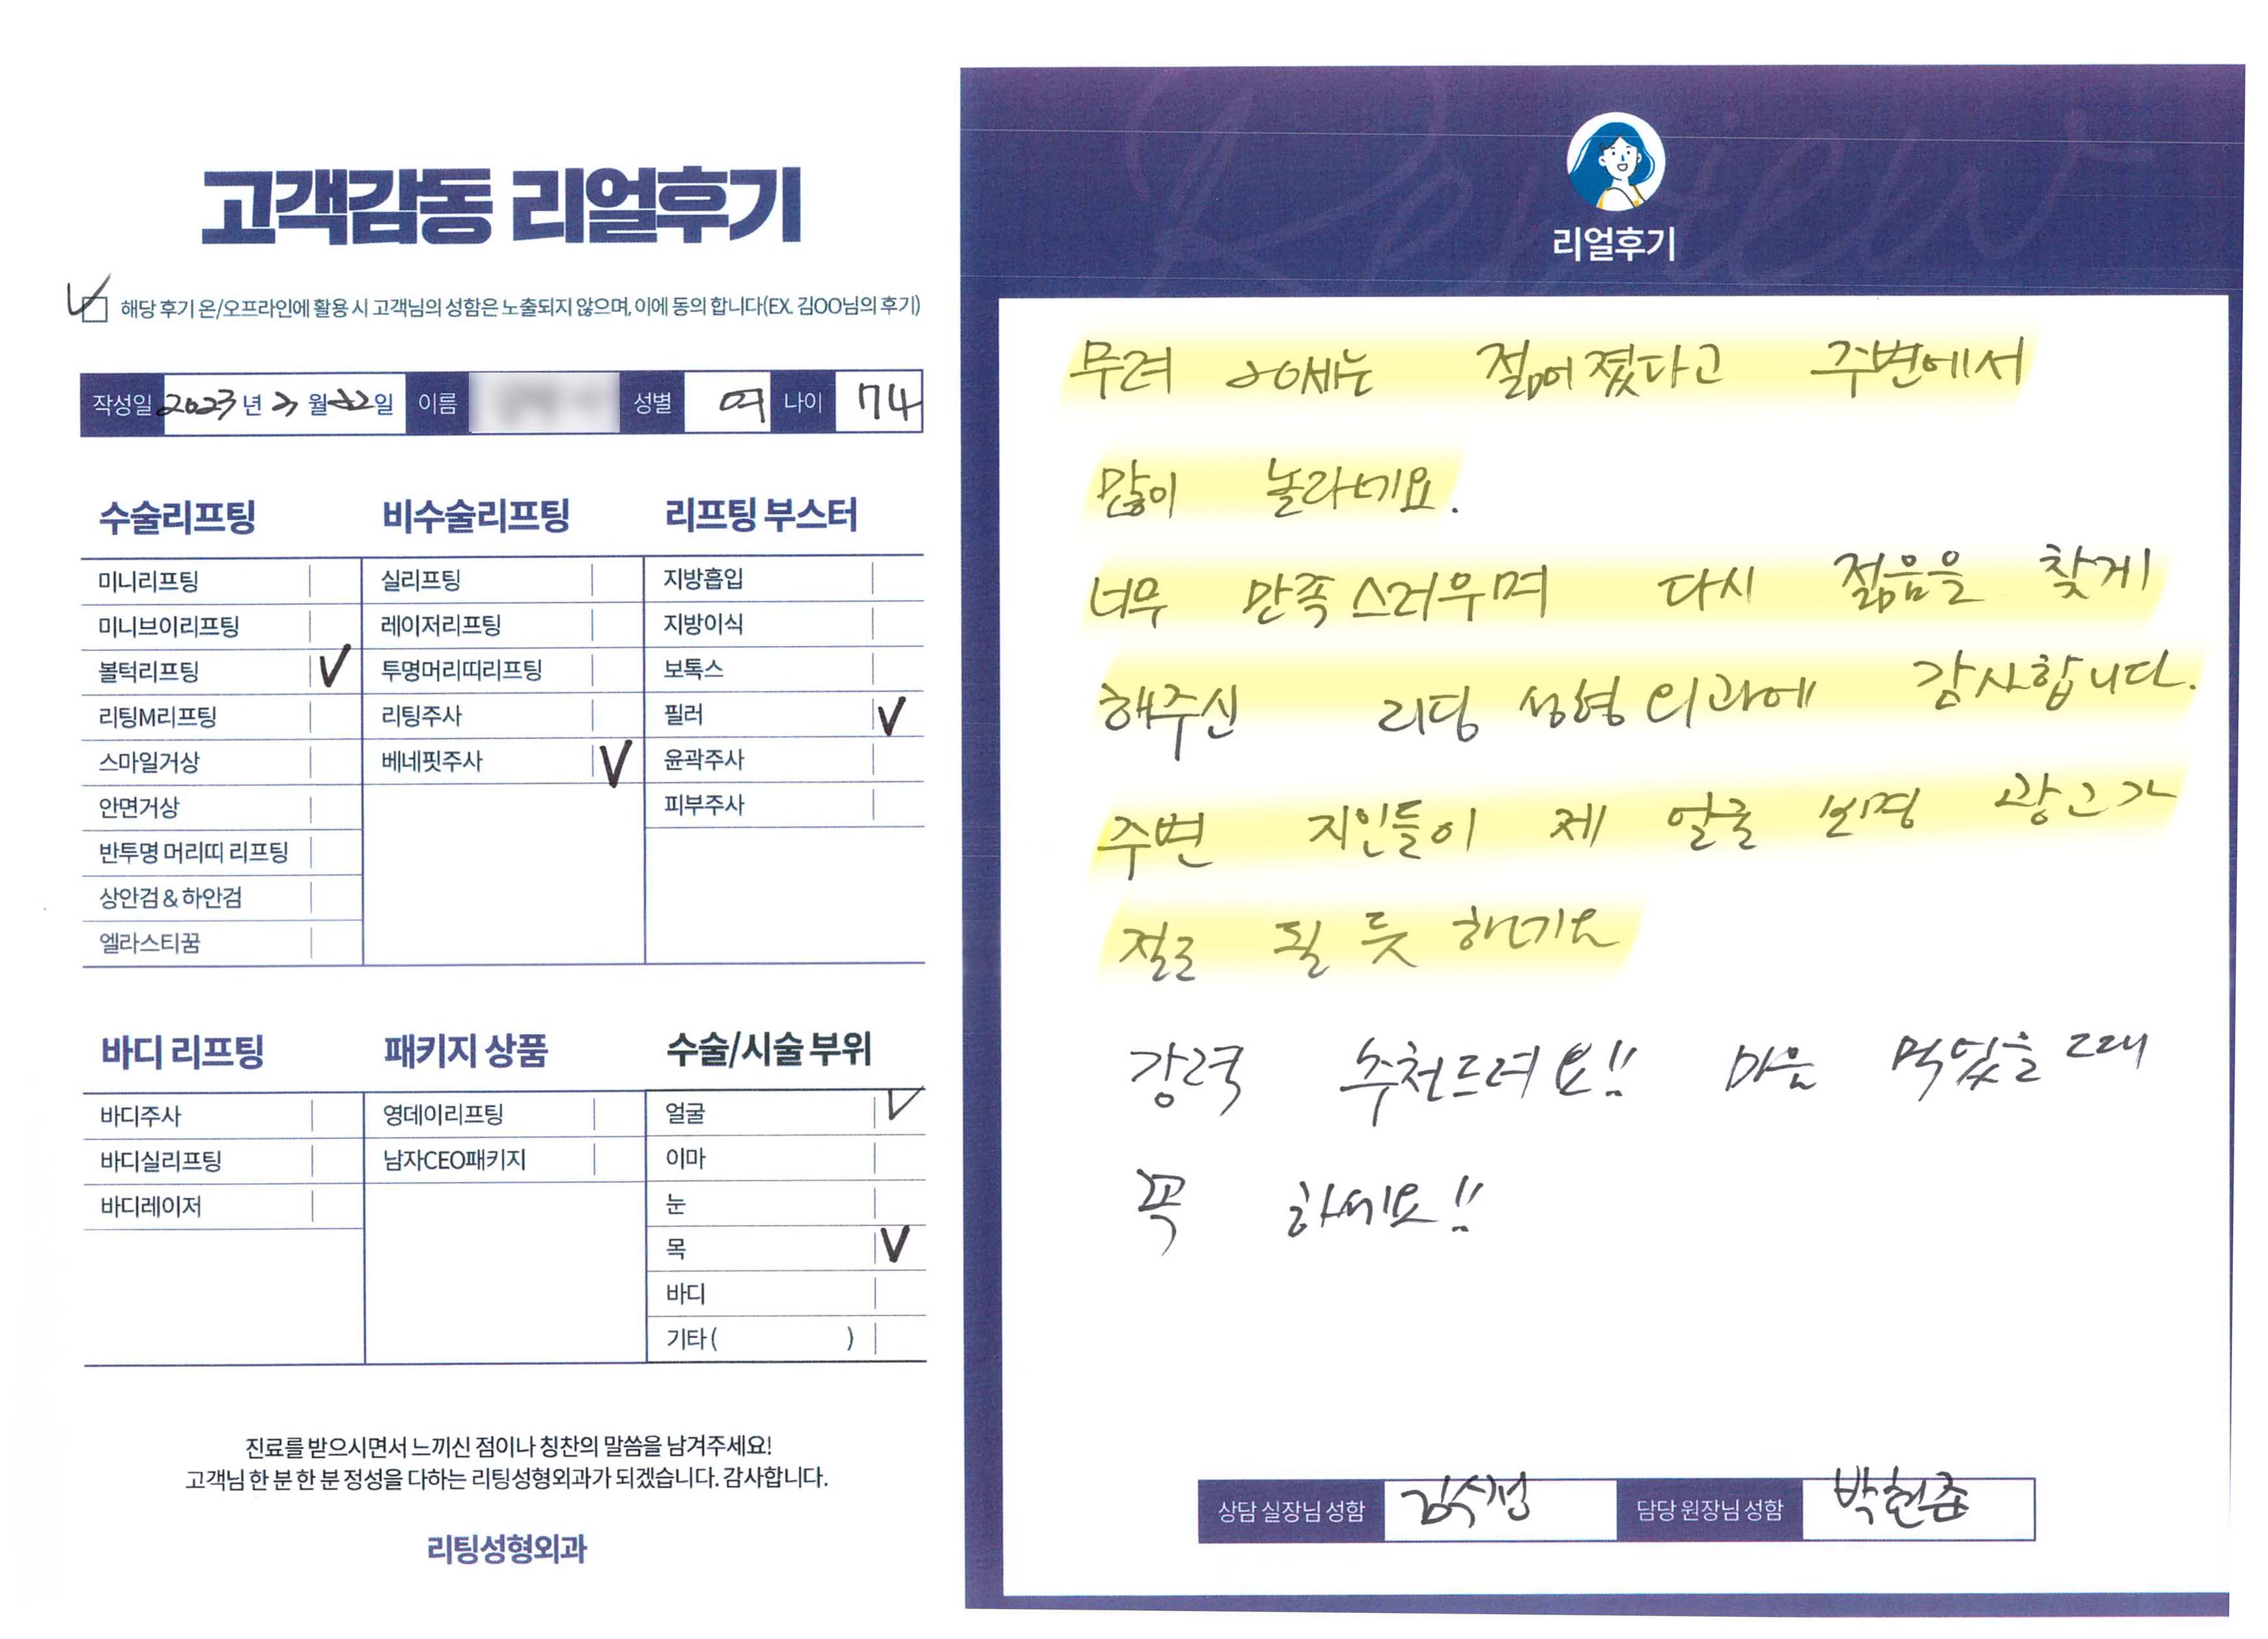 고객감동 리얼후기
해당 후기 온/오프라인에 활용 시 고객님의 성함은 노출되지 않으며, 이에 동의 합니다(EX. 김OO님의 후기)
작성일 2023년 3월 22일 이름 성별 여 나이 74
수술리프팅
미니리프팅
미니브이리프팅
볼턱리프팅 V
리팅M리프팅
스마일거상
안면거상
반투명 머리띠 리프팅
상안검 & 하안검
엘라스티꿈
비수술리프팅
실리프팅
레이저리프팅
투명머리띠리프팅
리팅주사
베네핏주사 V
리프팅 부스터
지방흡입
지방이식
보톡스
필러 V
윤곽주사
피부주사
바디 리프팅
바디주사
바디실리프팅
바디레이저
패키지 상품
영데이리프팅
남자CEO패키지
수술/시술 부위
얼굴 V
이마
눈
목 V
바디
기타 ( )
진료를 받으시면서 느끼신 점이나 칭찬의 말씀을 남겨주세요!
고객님 한 분 한 분 정성을 다하는 리팅성형외과가 되겠습니다. 감사합니다.
리팅성형외과
Review
리얼후기
무려 20세는 젊어졌다고 주변에서
많이 놀라네요.
너무 만족스러우며 다시 젊음을 찾게
해주신 리딩 성형외과에 감사합니다.
주변 지인들이 제 얼굴 보면 광고가
절로 될 듯 하네요
강력 추천드려요!! 마음 먹었을 때
꼭 하세요!!
상담 실장님 성함 김수정 담당 원장님 성함 박현준